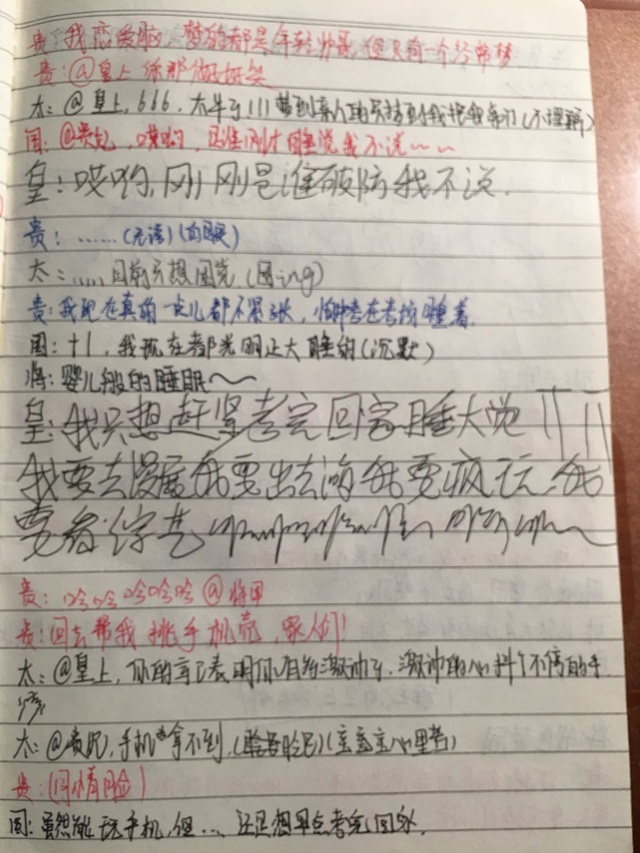 贵：我恋爱脑，梦的都是年轻帅哥，但只有一个经常梦
贵：@皇上 你那個好好笑
太：@皇上，666，太牛了!!!梦到真人
国：@贵妃，哎哟，是谁刚才睡觉我不说～～
皇：哎哟，刚刚是谁破防我不说.
贵：……(无语)(白眼)
太：……,目前不想困觉(困ing)
贵：我现在真的一点儿都不紧张，怕钟考在考场睡着.
国：+1，我现在都光明正大睡的(沉默)
将：婴儿般的睡眠～～
皇：我只想赶紧考完回家睡大觉！！！！
我要去漫展我要出去海我要疯玩 我
要看综艺
贵：哈哈哈哈哈 @将军
贵：回去帮我挑手机壳，家人们!
太：@皇上，你的字已表明你有多激动了.激动的心抖个不停的手.
太：@贵妃，手机拿不到.(宝宝心里苦)
贵：(同情脸)
国：虽然能玩手机，但…，还是想早点考完回家.